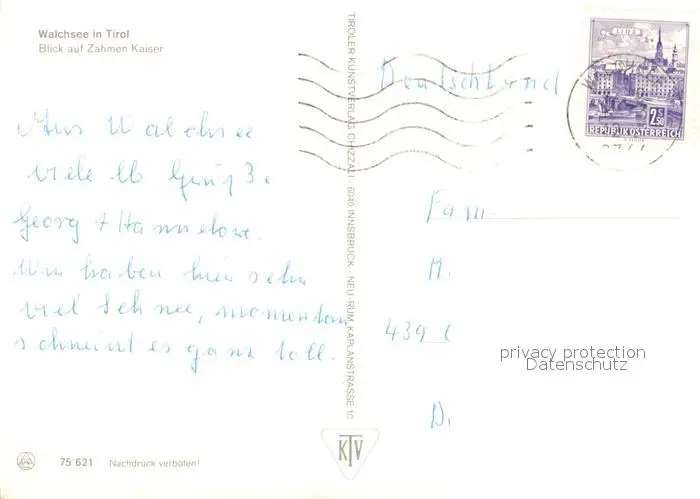 Walchsee in Tirol
Blick auf Zahmen Kaiser
Aus Walchsee
viele lb
Georg + Hannelore.
Wir haben hier sehr
viel Schnee, momentan
schneint es ganz toll.
75 621 Nachdruck verboten!
TIROLER KUNSTVERLAG CHIZZALI · 6040 INNSBRUCK - NEU-RUM, KAPLANSTRASSE 10
KTV
Deutschland
LINZ
2.50
REPUBLIK ÖSTERREICH
Fam.
M.
439
D.
privacy protection
Datenschutz